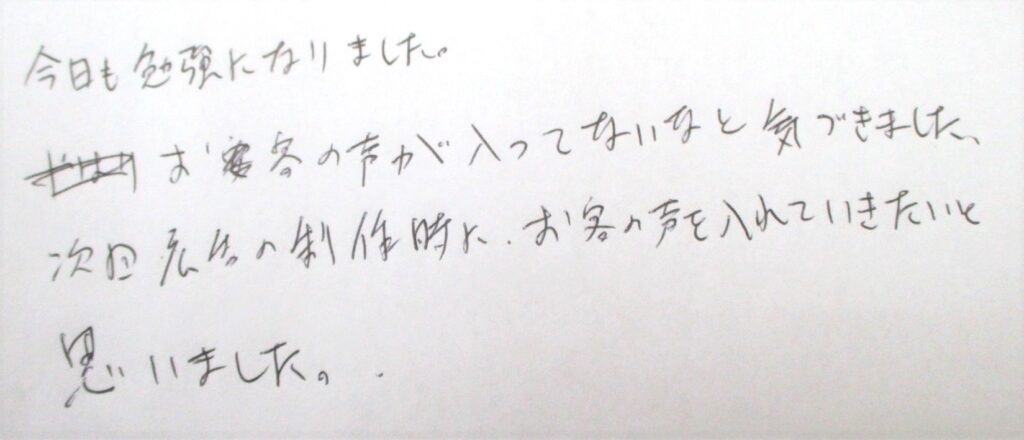 今日も勉強になりました。
お客の声が入ってないなと気づきました、
次回広告の制作時に、お客の声を入れていきたいと
思いました。